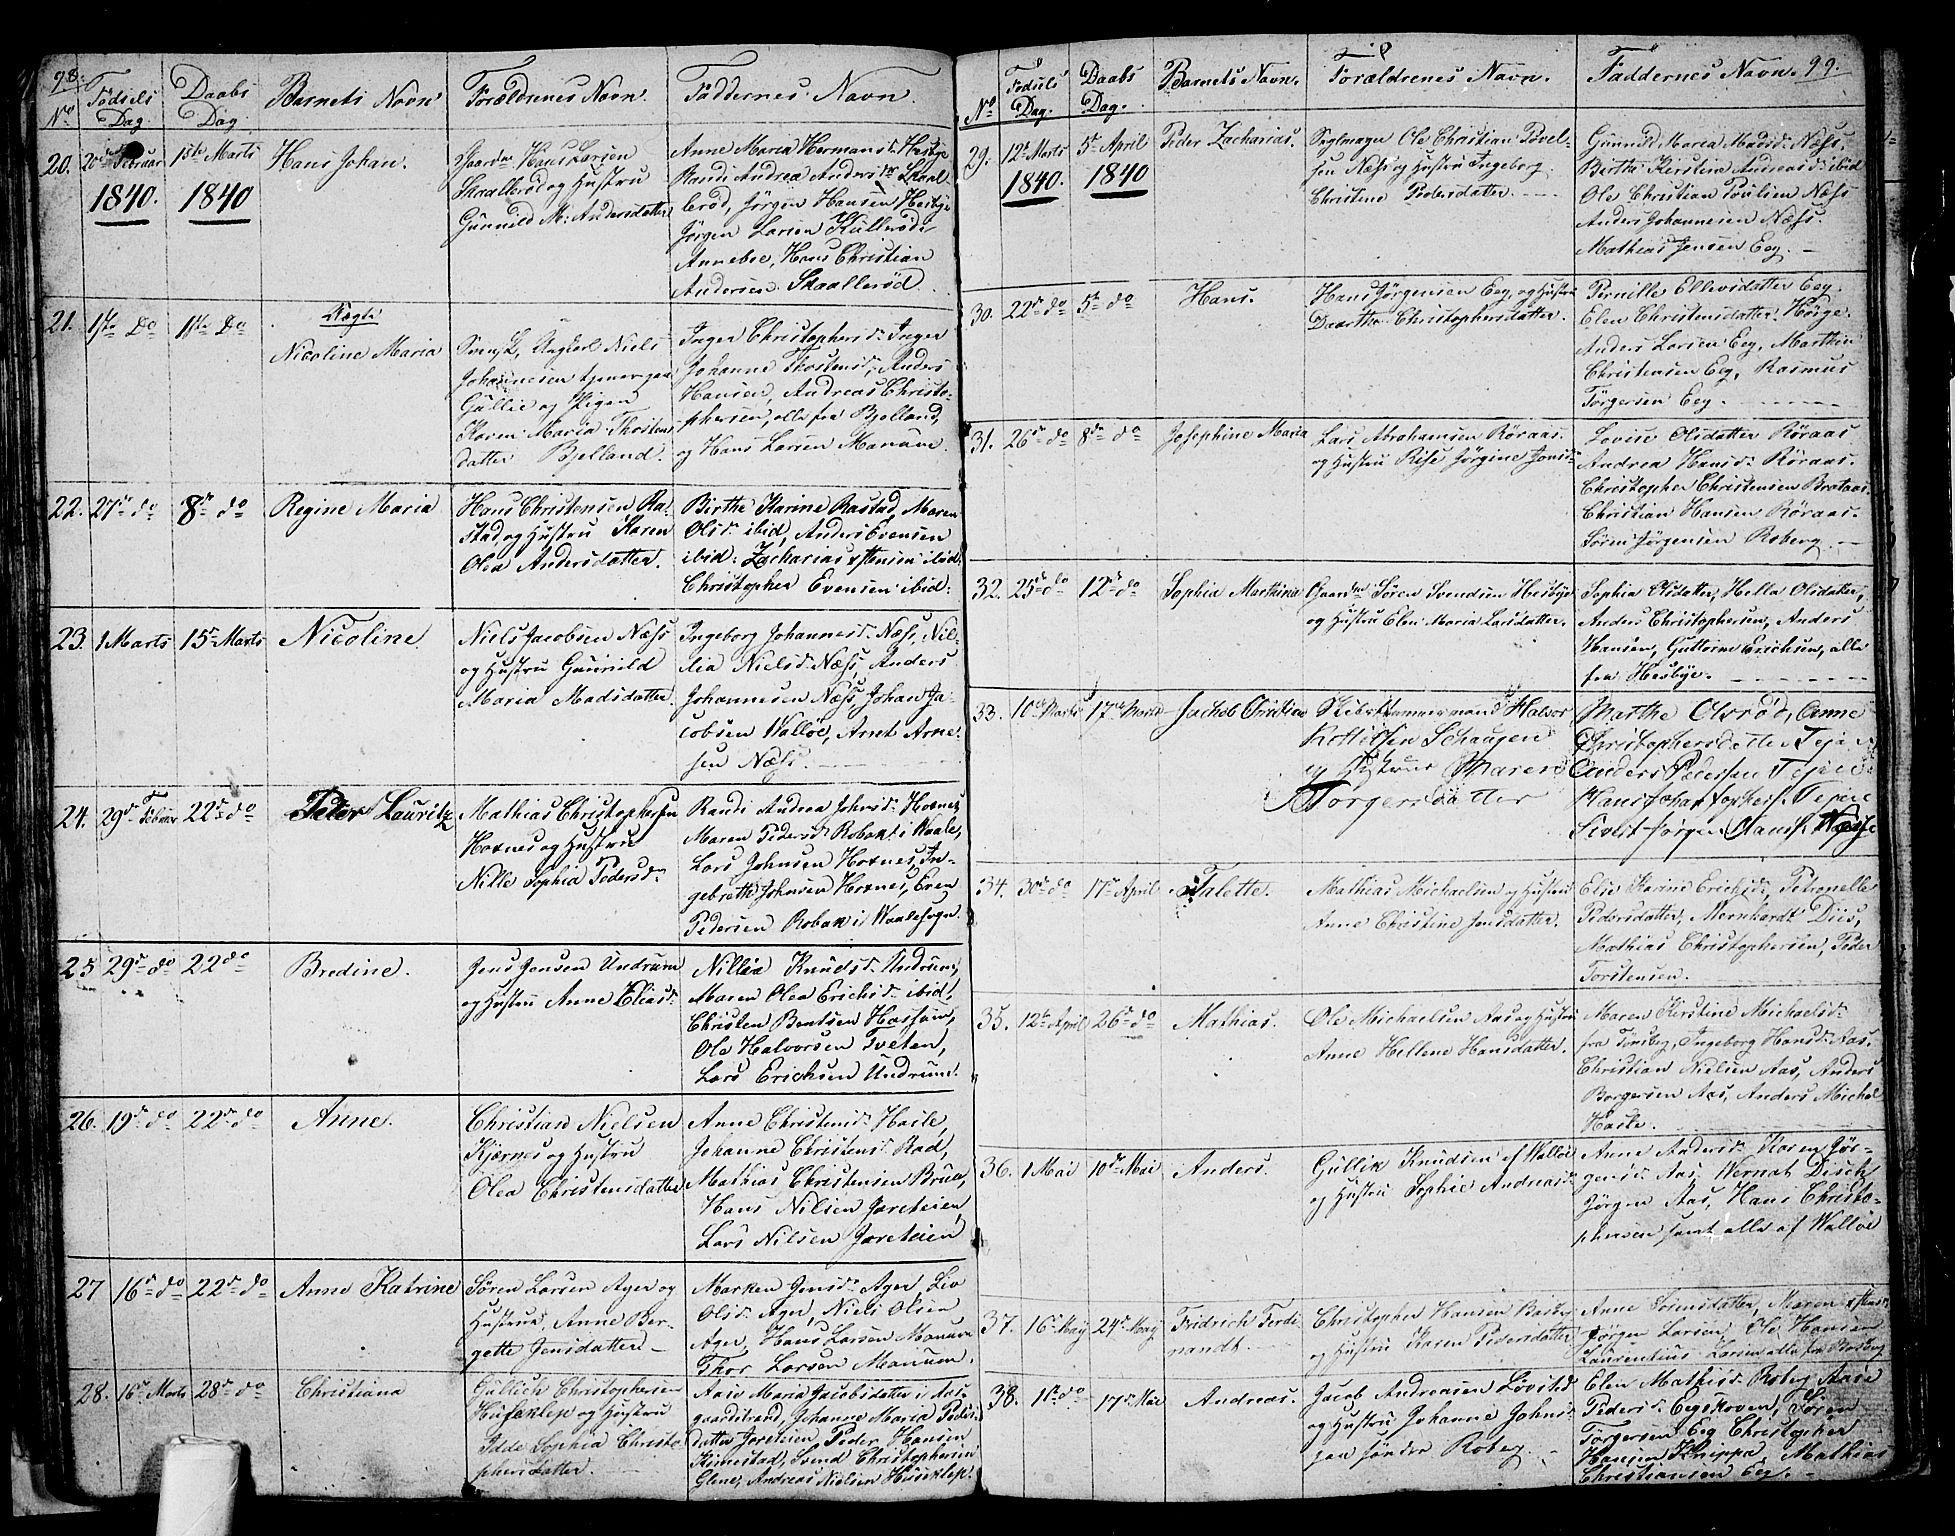 98.
No
Födsels Dag
Daabs Dag
Barnets Navn
Forældrenes Navn.
Faddernes Navn.
20. 20de Februar 1840. 1ste Marts 1840
Hans Johan.
Gaardm Hans Larsen
Skaallerød og Hustru
Gunneld M: Andersdatter
Anne Maria Hermansd: Hesbye
Randi Andrea Andersd: Skaal
lerød, Jørgen Hansen Hesbye
Jørgen Larsen Kullerød
Anneboe, Hans Christian
Andersen Skaallerød
21. 1ste Do 1ste Do
Uægte
Nicoline Maria
Svensk, Ungkarl Niels
Johannesen tjener paa
Gullie og Pigen
Karen Maria Thostens
datter Bjelland.
Inger Christophersd: Inger
Johanne Thostensd:, Anders
Hansen, Andreas Christo-
phersen, alle fra Bjelland,
og Hans Larsen Manum
22. 27de do 8de do
Regine Maria
Hans Christensen Ra-
stad og Hustru Karen
Olea Andersdatter.
Birthe Karine Rastad, Maren
Olsd: ibid, Anders Evensen
ibid: Zacharias Ellensen ibid
Christopher Evensen ibid:
23. 1 Marts 15de Marts
Nicoline.
Niels Jacobsen Næss
og Hustru Gunnild
Maria Madsdatter.
Ingeborg Johannesd: Næss, Nil-
lia Nielsd: Næss, Anders
Johannesen Næss, Johan Ja-
cobsen Walløe, Arnt Arne-
sen Næss.
24. 29de Februar 22de do
Peder Lauritz
Mathias Christophersen
Hornes og Hustru
Nille Sophia Pedersd:
Randi Andrea Johnsd: Hornes,
Maren Pedersd: Robak i Waale,
Lars Johnsen Horness, In-
gebreth Johnsen Hornes, Even
Pedersen Robak i Waale sogn
25 29de do 22 do
Bredine.
Jens Jensen Undrum
og Hustru Anne Eliasd:
Nillia Knudsd: Undrum,
Maren Olea Erichsd: ibid,
Christen Bentsen Hassum,
Ole Halvorsen Tveten,
Lars Erichsen Undrum.
26. 19de do 22de do
Anne.
Christian Nielsen
Kjærnes og Hustru
Olea Christensdatter
Anne Christensd: Hasle,
Johanne Christensd: Rad,
Mathias Christensen Bruu,
Hans Nilsen Jareteien,
Lars Nilsen Jareteien
27 16de do 22de do
Anne Katrine
Søren Larsen Ager og
Hustrue, Anne Ber-
gette Jensdatter
Marken Jensd: Ager, Liv
Olsd: Ager, Niels Olsen
Ager, Hans Larsen Manum
Thor Larsen Manum.
28. 16de Marts 28de do
Christiana
Gullich Christophersen
Huseklep og Hustru
Idde Sophia Christo
phersdatter.
Aase Maria Jacobsdatter i Aas-
gaardstrand, Johanne Maria Peders
datter Jareteien Peder Hansen
Kimestad, Svend Christophersen
Glene, Andreas Nielsen Husekleps
99.
No
Fødsels Dag.
Daabs Dag.
Barnets Navn.
Forældrenes Navn.
Faddernes Navn.
29. 12te Marts 1840. 5te April 1840
Peder Zacharias.
Seglmager Ole Christian Povel-
sen Næss og Hustru Ingeborg
Christine Pedersdatter.
Gunneld Maria Madsd: Næss,
Birthe Kirstin Andreasd: ibid
Ole Christian Poulsen Næss
Anders Johannesen Næss.
Mathias Jensen Eeg.
30. 22de do 5te do
Hans.
Hans Jörgensen Eeg og Hustru
Daarthe Christophersdatter.
Pernille Ellevsdatter Eeg.
Elen Christensdatter Horge.
Anders Larsen Eeg, Marthin
Christensen Eeg, Rasmus
Törgersen Eeg.
31. 26de do 8de do
Josephine Maria
Lars Abrahamsen Röraas.
og Hustru Rise Jörgine Jonsd:
Lovise Olsdatter Röraas
Andrea Hansd: Röraas.
Christopher Christensen Brataas.
Christian Hansen Röraas.
Sören Jörgensen Roberg.
32. 25de do 12te do
Sophia Marthina
Gaardm Sören Svendsen Hesbye
og Hustru Elen Maria Larsdatter.
Sophia Olsdatter, Hella Olsdatter,
Anders Christophersen, Anders
Hansen, Guttorm Erichsen, alle
fra Hesbye.
33. 10de Marts 17de Marts
Jachob Cristian
Skibstømmermand Halvor
Kettilsen Schaugen
og Hustrue Maren
Torgersdatter
Marthe Olsrød, Anne
Christophersdatter Teje
Anders Pedersen Tejie
Hans Johan tophers. Tejeie
Sivert Jørgen Hans. Næsse
34. 30te do 17de April
Talette.
Mathias Michaelsen og Hustru
Anne Christine Jensdatter.
Elie Karine Erichsd:, Petronelle
Pedersdatter, Mernhardt Diis,
Mathias Christophersen, Peder
Torstensen.
35. 12te April 26de do
Mathias.
Ole Michaelsen Aas og Hustru
Anne Hellene Hansdatter.
Maren Kirstine Michaelsd:
fra Tönsbeg, Ingeborg Hansd: Aas.
Christian Nielsen Aas, Anders
Borgersen Aas, Anders Michel
Hasle.
36. 1 Mai 10de Mai
Anders.
Gullik Knudsen af Walløe
og Hustru Sophie Andreasd:
Anne Andersd: Karen Jör-
gensd: Aas, Wernat Disch,
Jörgen Aas, Hans Christo-
phersen samt alle af Walløe
37. 16de May 24de May
Fridrich Ferdi
nandt.
Christopher Hansen Basberg
og Hustru Karen Pedersdatter
Anne Sörensdatter, Maren
Jörgen Larsen, Ole Hansen
Laurentius Larsen alle fra Basberg
38. 1te do 17de Mai
Andreas.
Jacob Andreasen Lövsted
og Hustru Johanne Johnsd:
paa søndre Roberg.
Elen Mathisd: Roberg Aase
Pedersd: Eegskoven, Sören
Törgersen Eeg Christopher
Hansen Knippa, Mathias
Christiansen Eeg.